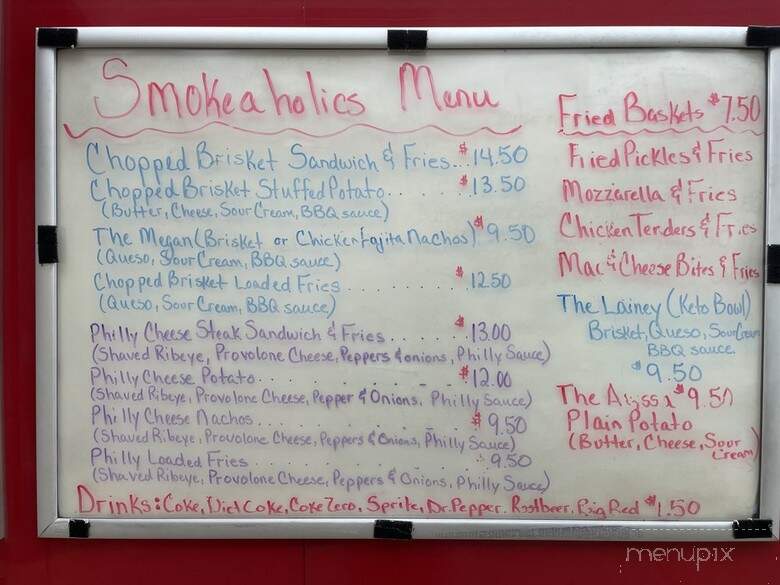 Smokeaholics Menu
Chopped Brisket Sandwich & Fries... $14.50
Chopped Brisket Stuffed Potato........ $13.50
(Butter, Cheese, Sour Cream, BBQ sauce)
The Megan (Brisket or Chicken Fajita Nachos) $9.50
(Queso, Sour Cream, BBQ sauce)
Chopped Brisket Loaded Fries........ $12.50
(Queso, Sour Cream, BBQ sauce)
Philly Cheese Steak Sandwich & Fries...... $13.00
(Shaved Ribeye, Provolone Cheese, Peppers & onions, Philly Sauce)
Philly Cheese Potato............ $12.00
(Shaved Ribeye, Provolone Cheese, Pepper & Onions, Philly Sauce)
Philly Cheese Nachos............ $9.50
(Shaved Ribeye, Provolone Cheese, Peppers & Onions, Philly Sauce)
Philly Loaded Fries............ 9.50
(Shaved Ribeye, Provolone Cheese, Peppers & Onions, Philly Sauce)
Fried Baskets $7.50
Fried Pickles & Fries
Mozzarella & Fries
Chicken Tenders & Fries
Mac & Cheese Bites & Fries
The Lainey (Keto Bowl)
Brisket, Queso, Sour Cream
BBQ sauce.
$9.50
The $9.50
Plain Potato
(Butter, Cheese, Sour
Cream)
Drinks: Coke, Diet Coke, Coke Zero, Sprite, Dr. Pepper, Rootbeer, Big Red $1.50
menupix